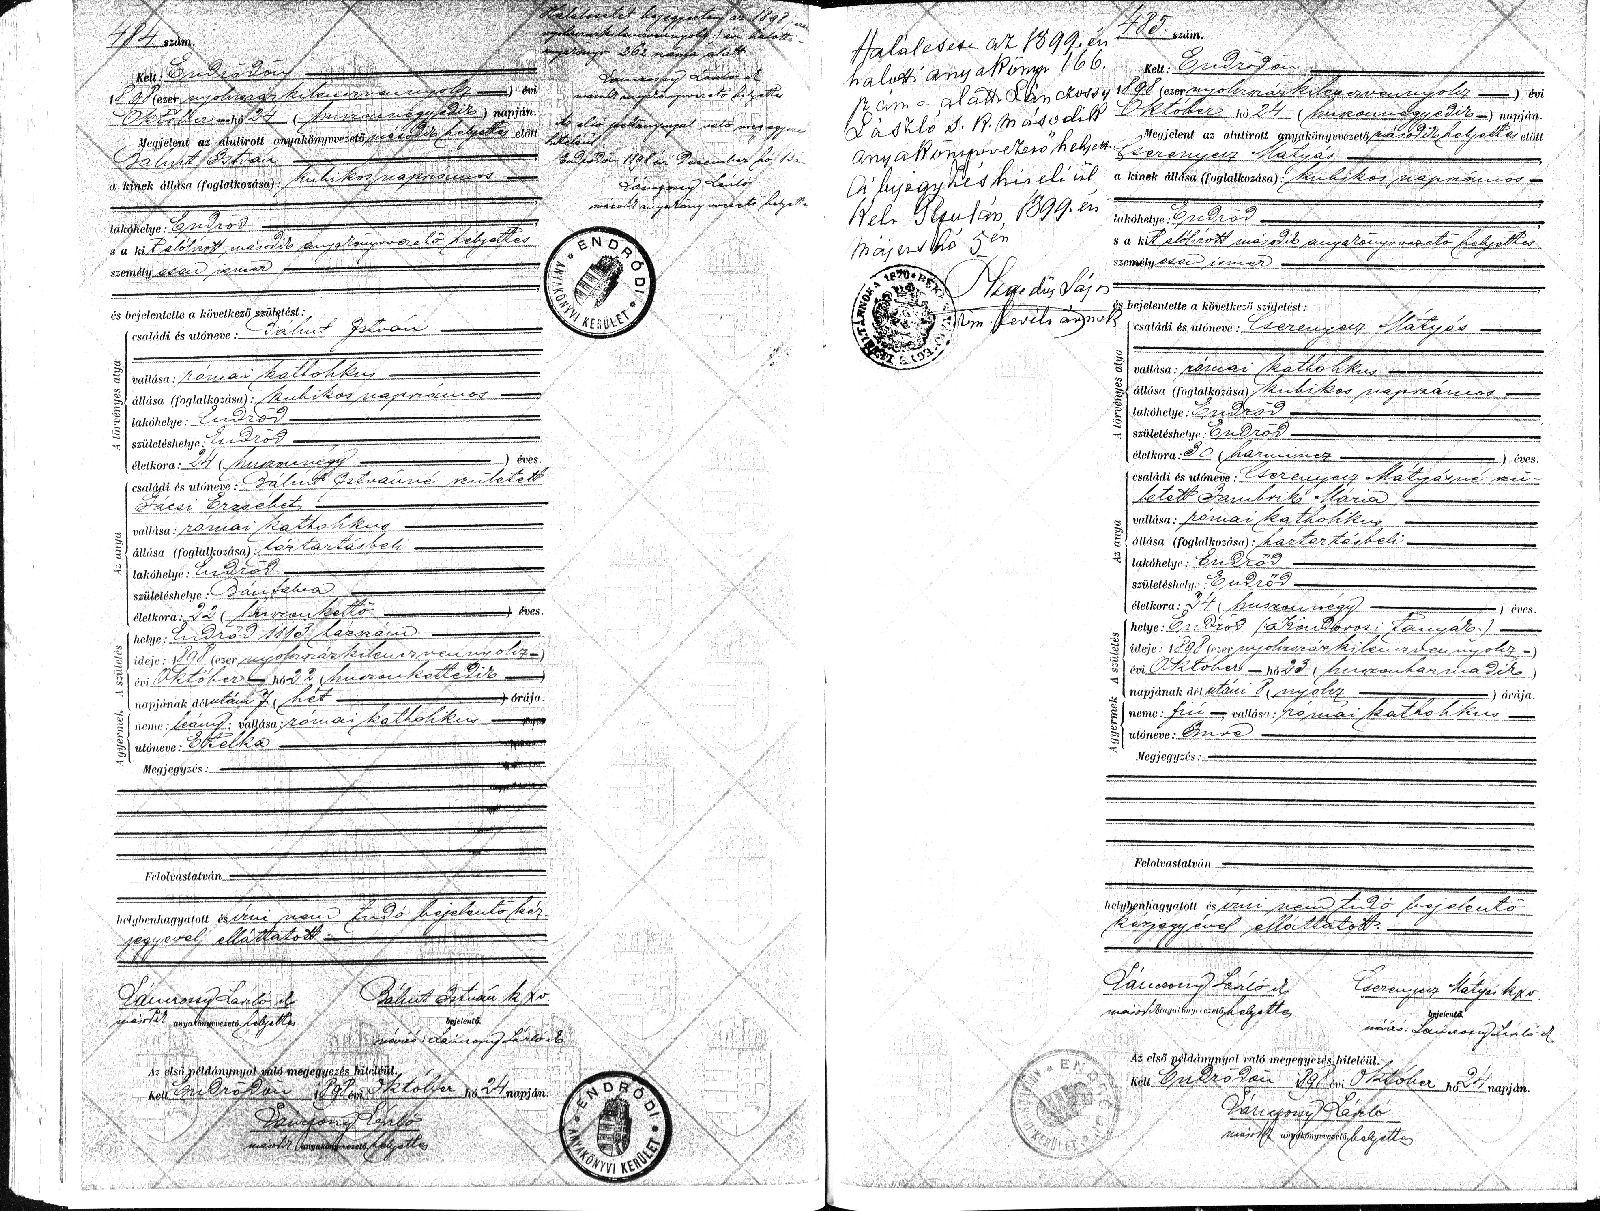 484. szám.
Kelt: Endrődön
1898 (ezer nyolczszázkilenczvennyolcz) évi
Október hó 24 (huszonnegyedik) napján.
Megjelent az alulirott anyakönyvvezető második helyettes előtt
Bálint István
a kinek állása (foglalkozása): kubikos napszámos
lakóhelye: Endrőd
s a kit alólirott második anyakönyvvezető helyettes
személyesen ismer
és bejelentette a következő születést:
A törvényes atya
családi és utóneve: Bálint István
vallása: római katholikus
állása (foglalkozása): kubikos napszámos
lakóhelye: Endrőd
születéshelye: Endrőd
életkora: 24 (huszonnégy) éves.
Az anya
családi és utóneve: Bálint Istvánné született
Bácsi Erzsébet
vallása: római katholikus
állása (foglalkozása): háztartásbeli
lakóhelye: Endrőd
születéshelye:
életkora: 22 (huszonkettő) éves.
A születés
helye: Endrőd 1813 házszám
ideje: 1898 (ezer nyolczszázkilenczvennyolcz)
évi Október hó 22 (huszonkettedik)
napjának délutáni 7 (hét) órája.
A gyermek
neme: leány; vallása: római katholikus
utóneve: Etelka
Megjegyzés:
Felolvastatván
helybenhagyatott és írni nem tudó bejelentő kéz-
jegyével elláttatott.
Lánczossy László s. k.
második anyakönyvvezető helyettes
Bálint István k x v
bejelentő.
Lánczossy László s. k.
Az első példánynyal való megegyezés hiteléül.
Kelt Endrődön 1898 évi Október hó 24 napján.
Lánczossy László
második anyakönyvvezető helyettes
Lánczossy László s. k.
második anyakönyvvezető helyettes
Az első példánynyal való megegyezés
hiteléül
Endrődön 1898 évi December hó
Lánczossy László
második anyakönyvvezető helyettes
ENDRŐDI
ANYAKÖNYVI KERÜLET
ENDRŐDI
ANYAKÖNYVI KERÜLET
Halálesete az 1899. évi
halotti anyakönyv 166.
szám alatt Lánczossy
László s. k. második
anyakönyvvezető helyett.
A bejegyzés hiteléül
Kelt Gyulán, 1899. évi
május hó 5 én
1870
485. szám.
Kelt: Endrődön
1898 (ezer nyolczszázkilenczvennyolcz) évi
Október hó 24 (huszonnegyedik) napján.
Megjelent az alulirott anyakönyvvezető második helyettes előtt
Cserenyecz Mátyás
a kinek állása (foglalkozása): kubikos napszámos
lakóhelye: Endrőd
s a kit alólirott második anyakönyvvezető helyettes
személyesen ismer
és bejelentette a következő születést:
A törvényes atya
családi és utóneve: Cserenyecz Mátyás
vallása: római katholikus
állása (foglalkozása): kubikos napszámos
lakóhelye: Endrőd
születéshelye: Endrőd
életkora: 30 (harmincz) éves.
Az anya
családi és utóneve: Cserenyecz Mátyásné szü-
letett Mária
vallása: római katholikus
állása (foglalkozása): háztartásbeli
lakóhelye: Endrőd
születéshely: Endrőd
életkora: 24 (huszonnégy) éves.
A születés
helye: Endrőd (a Kondorosi Tanyák.)
ideje: 1898 (ezer nyolczszázkilenczvennyolcz)
évi Október hó 23 (huszonharmadik)
napjának délutáni 8 (nyolcz) órája.
A gyermek
neme: fiú; vallása: római katholikus
utóneve: Imre
Megjegyzés:
Felolvastatván
helybenhagyatott és írni nem tudó bejelentő
kézjegyével elláttatott.
Lánczossy László s. k.
második anyakönyvvezető helyettes
Cserenyecz Mátyás k x v
bejelentő.
Lánczossy László s. k.
Az első példánynyal való megegyezés hiteléül.
Kelt Endrődön 1898 évi Október hó 24 napján.
Lánczossy László
második anyakönyvvezető helyettes